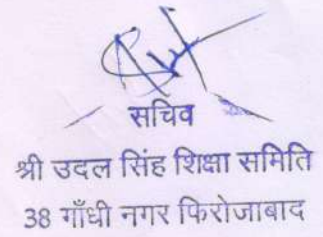 सचिव
श्री उदल सिंह शिक्षा समिति
38 गाँधी नगर फिरोजाबाद